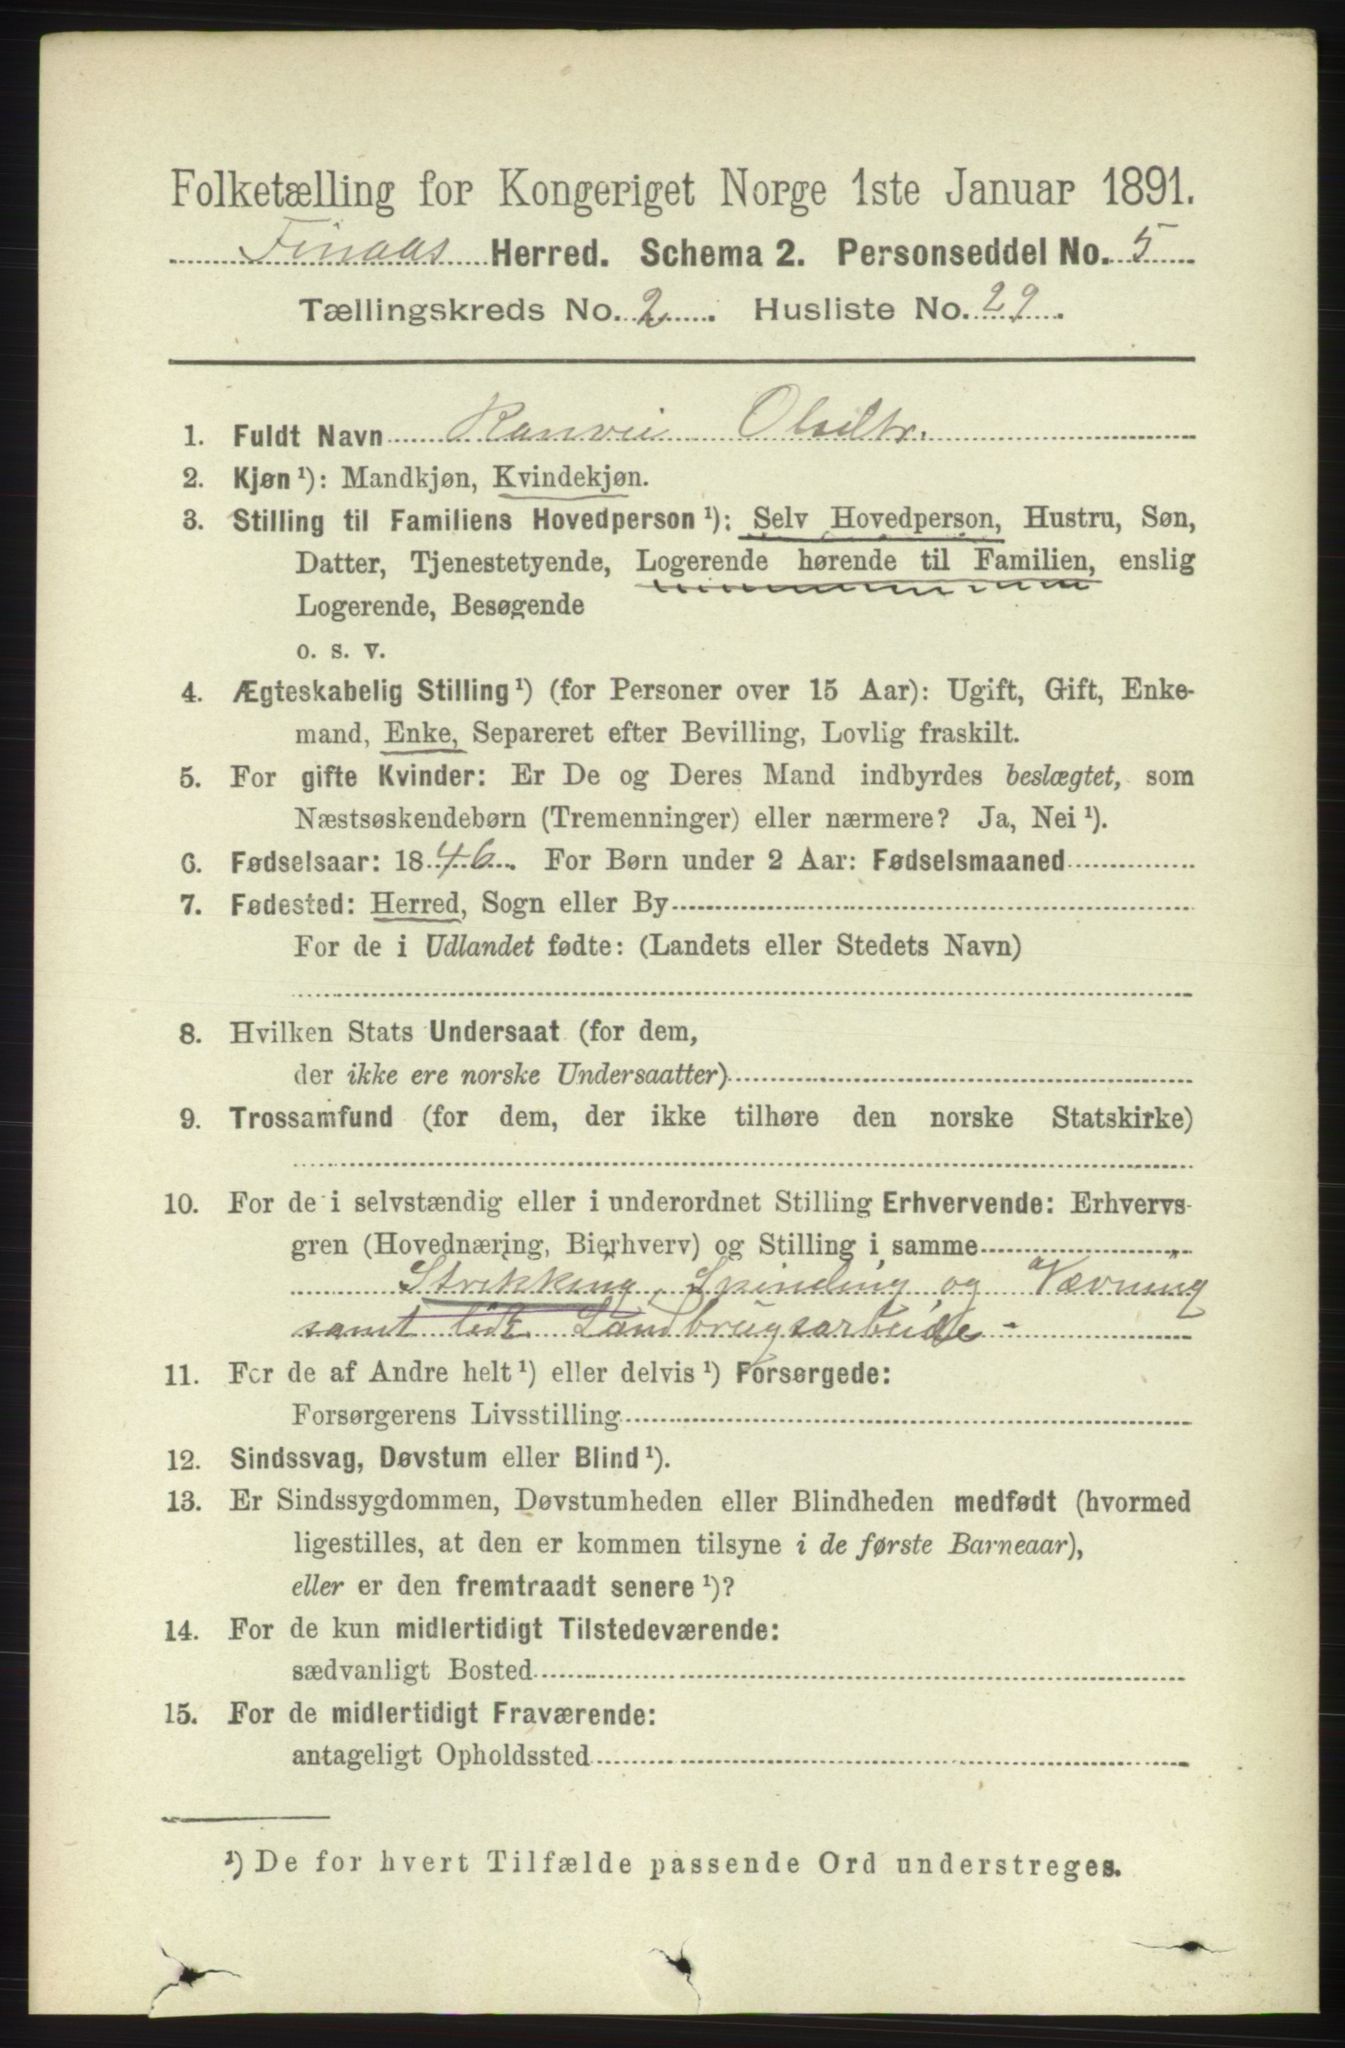 Folketælling for Kongeriget Norge 1ste Januar 1891.
Finaas Herred. Schema 2. Personseddel No. 5
Tællingskreds No. 2. Husliste No. 29.
1. Fuldt Navn Ranvei Olsdtr.
2. Kjøn ¹): Mandkjøn, Kvindekjøn.
3. Stilling til Familiens Hovedperson ¹): Selv Hovedperson, Hustru, Søn,
Datter, Tjenestetyende, Logerende hørende til Familien, enslig
Logerende, Besøgende
o. s. v.
4. Ægteskabelig Stilling ¹) (for Personer over 15 Aar): Ugift, Gift, Enke-
mand, Enke, Separeret efter Bevilling, Lovlig fraskilt.
5. For gifte Kvinder: Er De og Deres Mand indbyrdes beslægtet, som
Næstsøskendebørn (Tremenninger) eller nærmere? Ja, Nei ¹).
6. Fødselsaar: 1846. For Børn under 2 Aar: Fødselsmaaned
7. Fødested: Herred, Sogn eller By
For de i Udlandet fødte: (Landets eller Stedets Navn)
8. Hvilken Stats Undersaat (for dem,
der ikke ere norske Undersaatter)
9. Trossamfund (for dem, der ikke tilhøre den norske Statskirke)
10. For de i selvstændig eller i underordnet Stilling Erhvervende: Erhvervs-
gren (Hovednæring, Bierhverv) og Stilling i samme
Strikking, Spinding og Vævning
samt lidt Landbrugsarbeide -
11. For de af Andre helt ¹) eller delvis ¹) Forsørgede:
Forsørgerens Livsstilling
12. Sindssvag, Døvstum eller Blind ¹).
13. Er Sindssygdommen, Døvstumheden eller Blindheden medfødt (hvormed
ligestilles, at den er kommen tilsyne i de første Barneaar),
eller er den fremtraadt senere ¹)?
14. For de kun midlertidigt Tilstedeværende:
sædvanligt Bosted
15. For de midlertidigt Fraværende:
antageligt Opholdssted
¹) De for hvert Tilfælde passende Ord understreges.